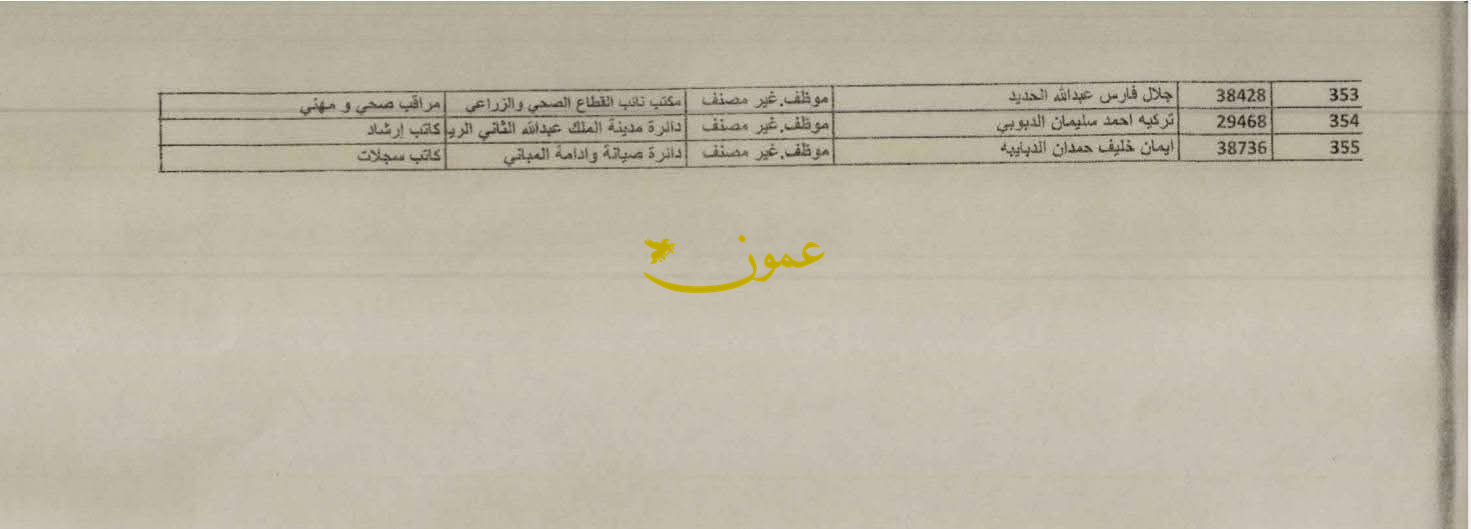 353 38428 جلال فارس عبدالله الحديد موظف.غير مصنف مكتب نائب القطاع الصحي والزراعي مراقب صحي و مهني
354 29468 تركيه احمد سليمان الدبوبي موظف.غير مصنف دائرة مدينة الملك عبدالله الثاني الريا كاتب إرشاد
355 38736 ايمان خليف حمدان الدبايبه موظف.غير مصنف دائرة صيانة وادامة المباني كاتب سجلات
عمون